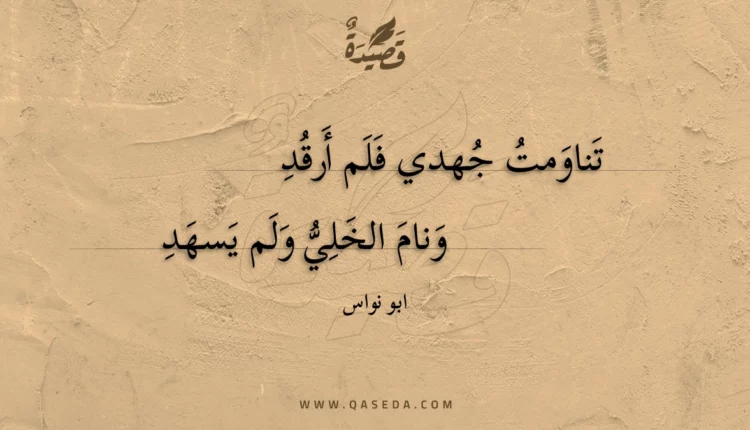 قَصِيدَةٌ
تَناوَمتُ جُهدي فَلَم أَرقُدِ
وَنامَ الخَلِيُّ وَلَم يَسهَدِ
ابو نواس
WWW.QASEDA.COM